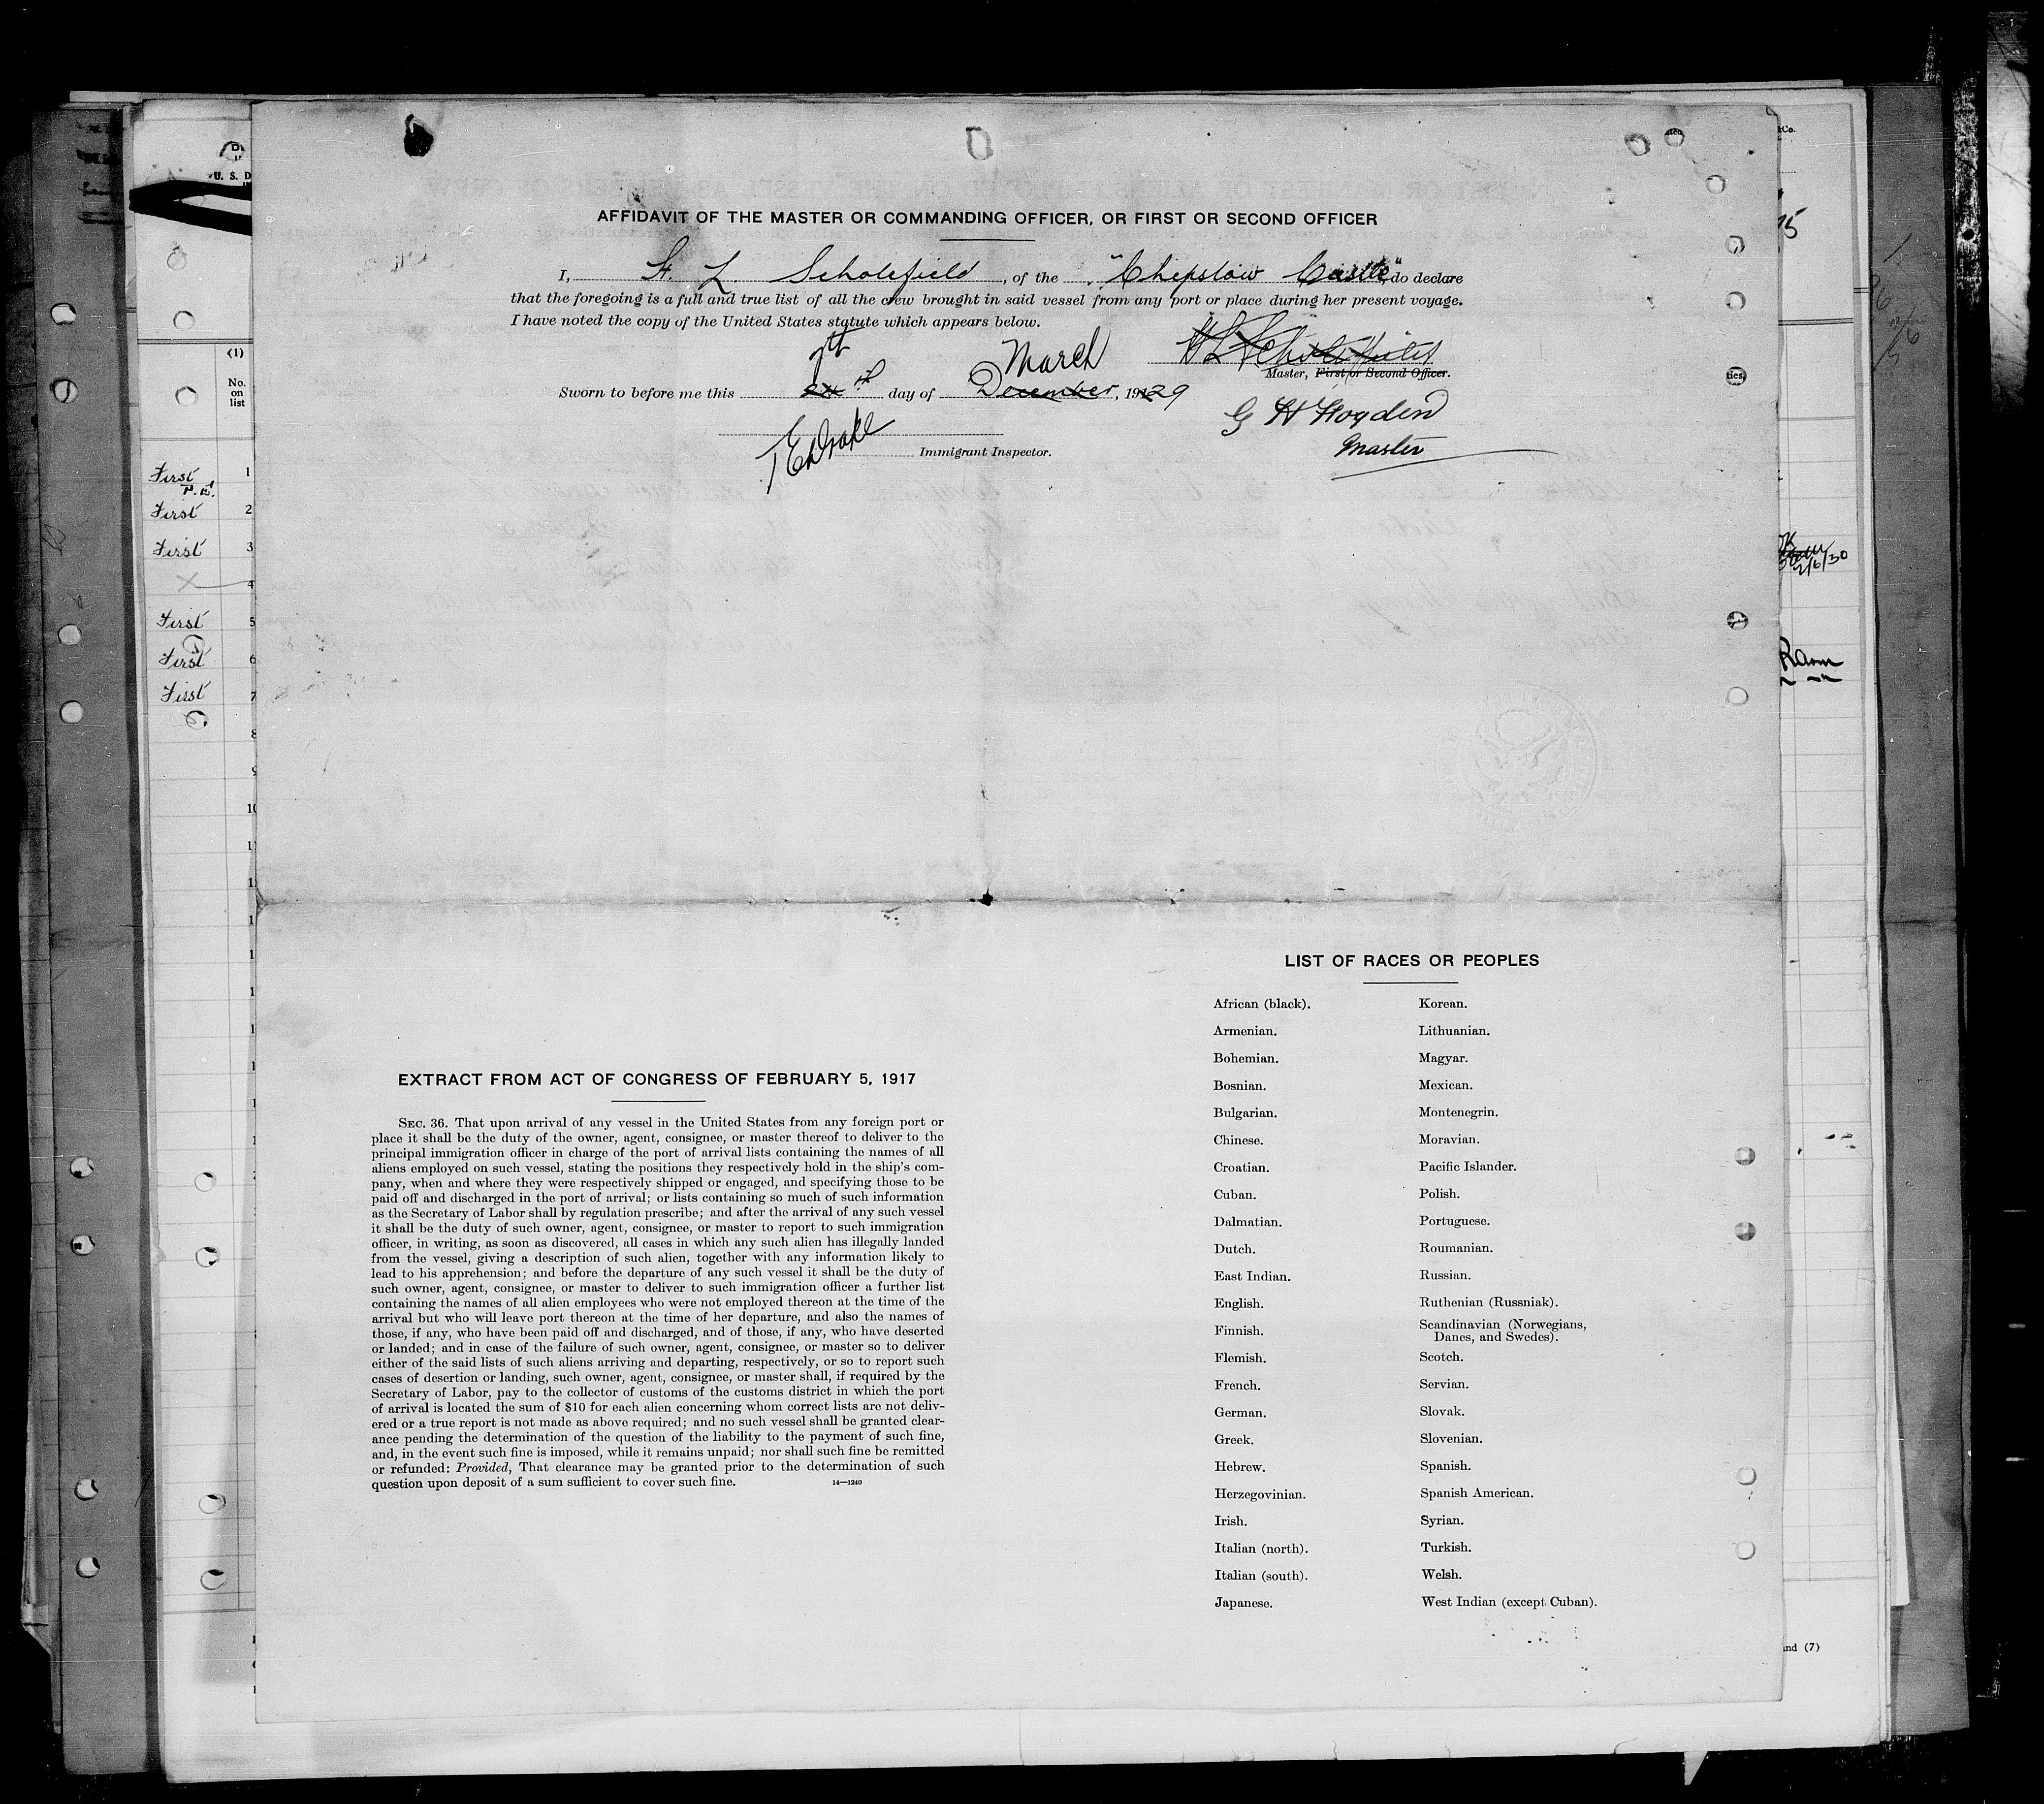 AFFIDAVIT OF THE MASTER OR COMMANDING OFFICER, OR FIRST OR SECOND OFFICER
I, H. L Scholefield, of the "Chepstow Castle", do declare
that the foregoing is a full and true list of all the crew brought in said vessel from any port or place during her present voyage.
I have noted the copy of the United States statute which appears below.
7th March
H L Scholefield
Master, First or Second Officer.
Sworn to before me this day of December, 1929
G H
Master
Immigrant Inspector.
LIST OF RACES OR PEOPLES
African (black). Korean.
Armenian. Lithuanian.
Bohemian. Magyar.
Bosnian. Mexican.
Bulgarian. Montenegrin.
Chinese. Moravian.
Croatian. Pacific Islander.
Cuban. Polish.
Dalmatian. Portuguese.
Dutch. Roumanian.
East Indian. Russian.
English. Ruthenian (Russniak).
Finnish. Scandinavian (Norwegians,
Danes, and Swedes).
Flemish. Scotch.
French. Servian.
German. Slovak.
Greek. Slovenian.
Hebrew. Spanish.
Herzegovinian. Spanish American.
Irish. Syrian.
Italian (north). Turkish.
Italian (south). Welsh.
Japanese. West Indian (except Cuban).
EXTRACT FROM ACT OF CONGRESS OF FEBRUARY 5, 1917
SEC. 36. That upon arrival of any vessel in the United States from any foreign port or
place it shall be the duty of the owner, agent, consignee, or master thereof to deliver to the
principal immigration officer in charge of the port of arrival lists containing the names of all
aliens employed on such vessel, stating the positions they respectively hold in the ship's com-
pany, when and where they were respectively shipped or engaged, and specifying those to be
paid off and discharged in the port of arrival; or lists containing so much of such information
as the Secretary of Labor shall by regulation prescribe; and after the arrival of any such vessel
it shall be the duty of such owner, agent, consignee, or master to report to such immigration
officer, in writing, as soon as discovered, all cases in which any such alien has illegally landed
from the vessel, giving a description of such alien, together with any information likely to
lead to his apprehension; and before the departure of any such vessel it shall be the duty of
such owner, agent, consignee, or master to deliver to such immigration officer a further list
containing the names of all alien employees who were not employed thereon at the time of the
arrival but who will leave port thereon at the time of her departure, and also the names of
those, if any, who have been paid off and discharged, and of those, if any, who have deserted
or landed; and in case of the failure of such owner, agent, consignee, or master so to deliver
either of the said lists of such aliens arriving and departing, respectively, or so to report such
cases of desertion or landing, such owner, agent, consignee, or master shall, if required by the
Secretary of Labor, pay to the collector of customs of the customs district in which the port
of arrival is located the sum of $10 for each alien concerning whom correct lists are not deliv-
ered or a true report is not made as above required; and no such vessel shall be granted clear-
ance pending the determination of the question of the liability to the payment of such fine,
and, in the event such fine is imposed, while it remains unpaid; nor shall such fine be remitted
or refunded: Provided, That clearance may be granted prior to the determination of such
question upon deposit of a sum sufficient to cover such fine. 14—1240
U. S. D
(1)
No.
on
list
First 1
First 2
First 3
4
First 5
First 6
First 7
8
2/6/30
and (7)